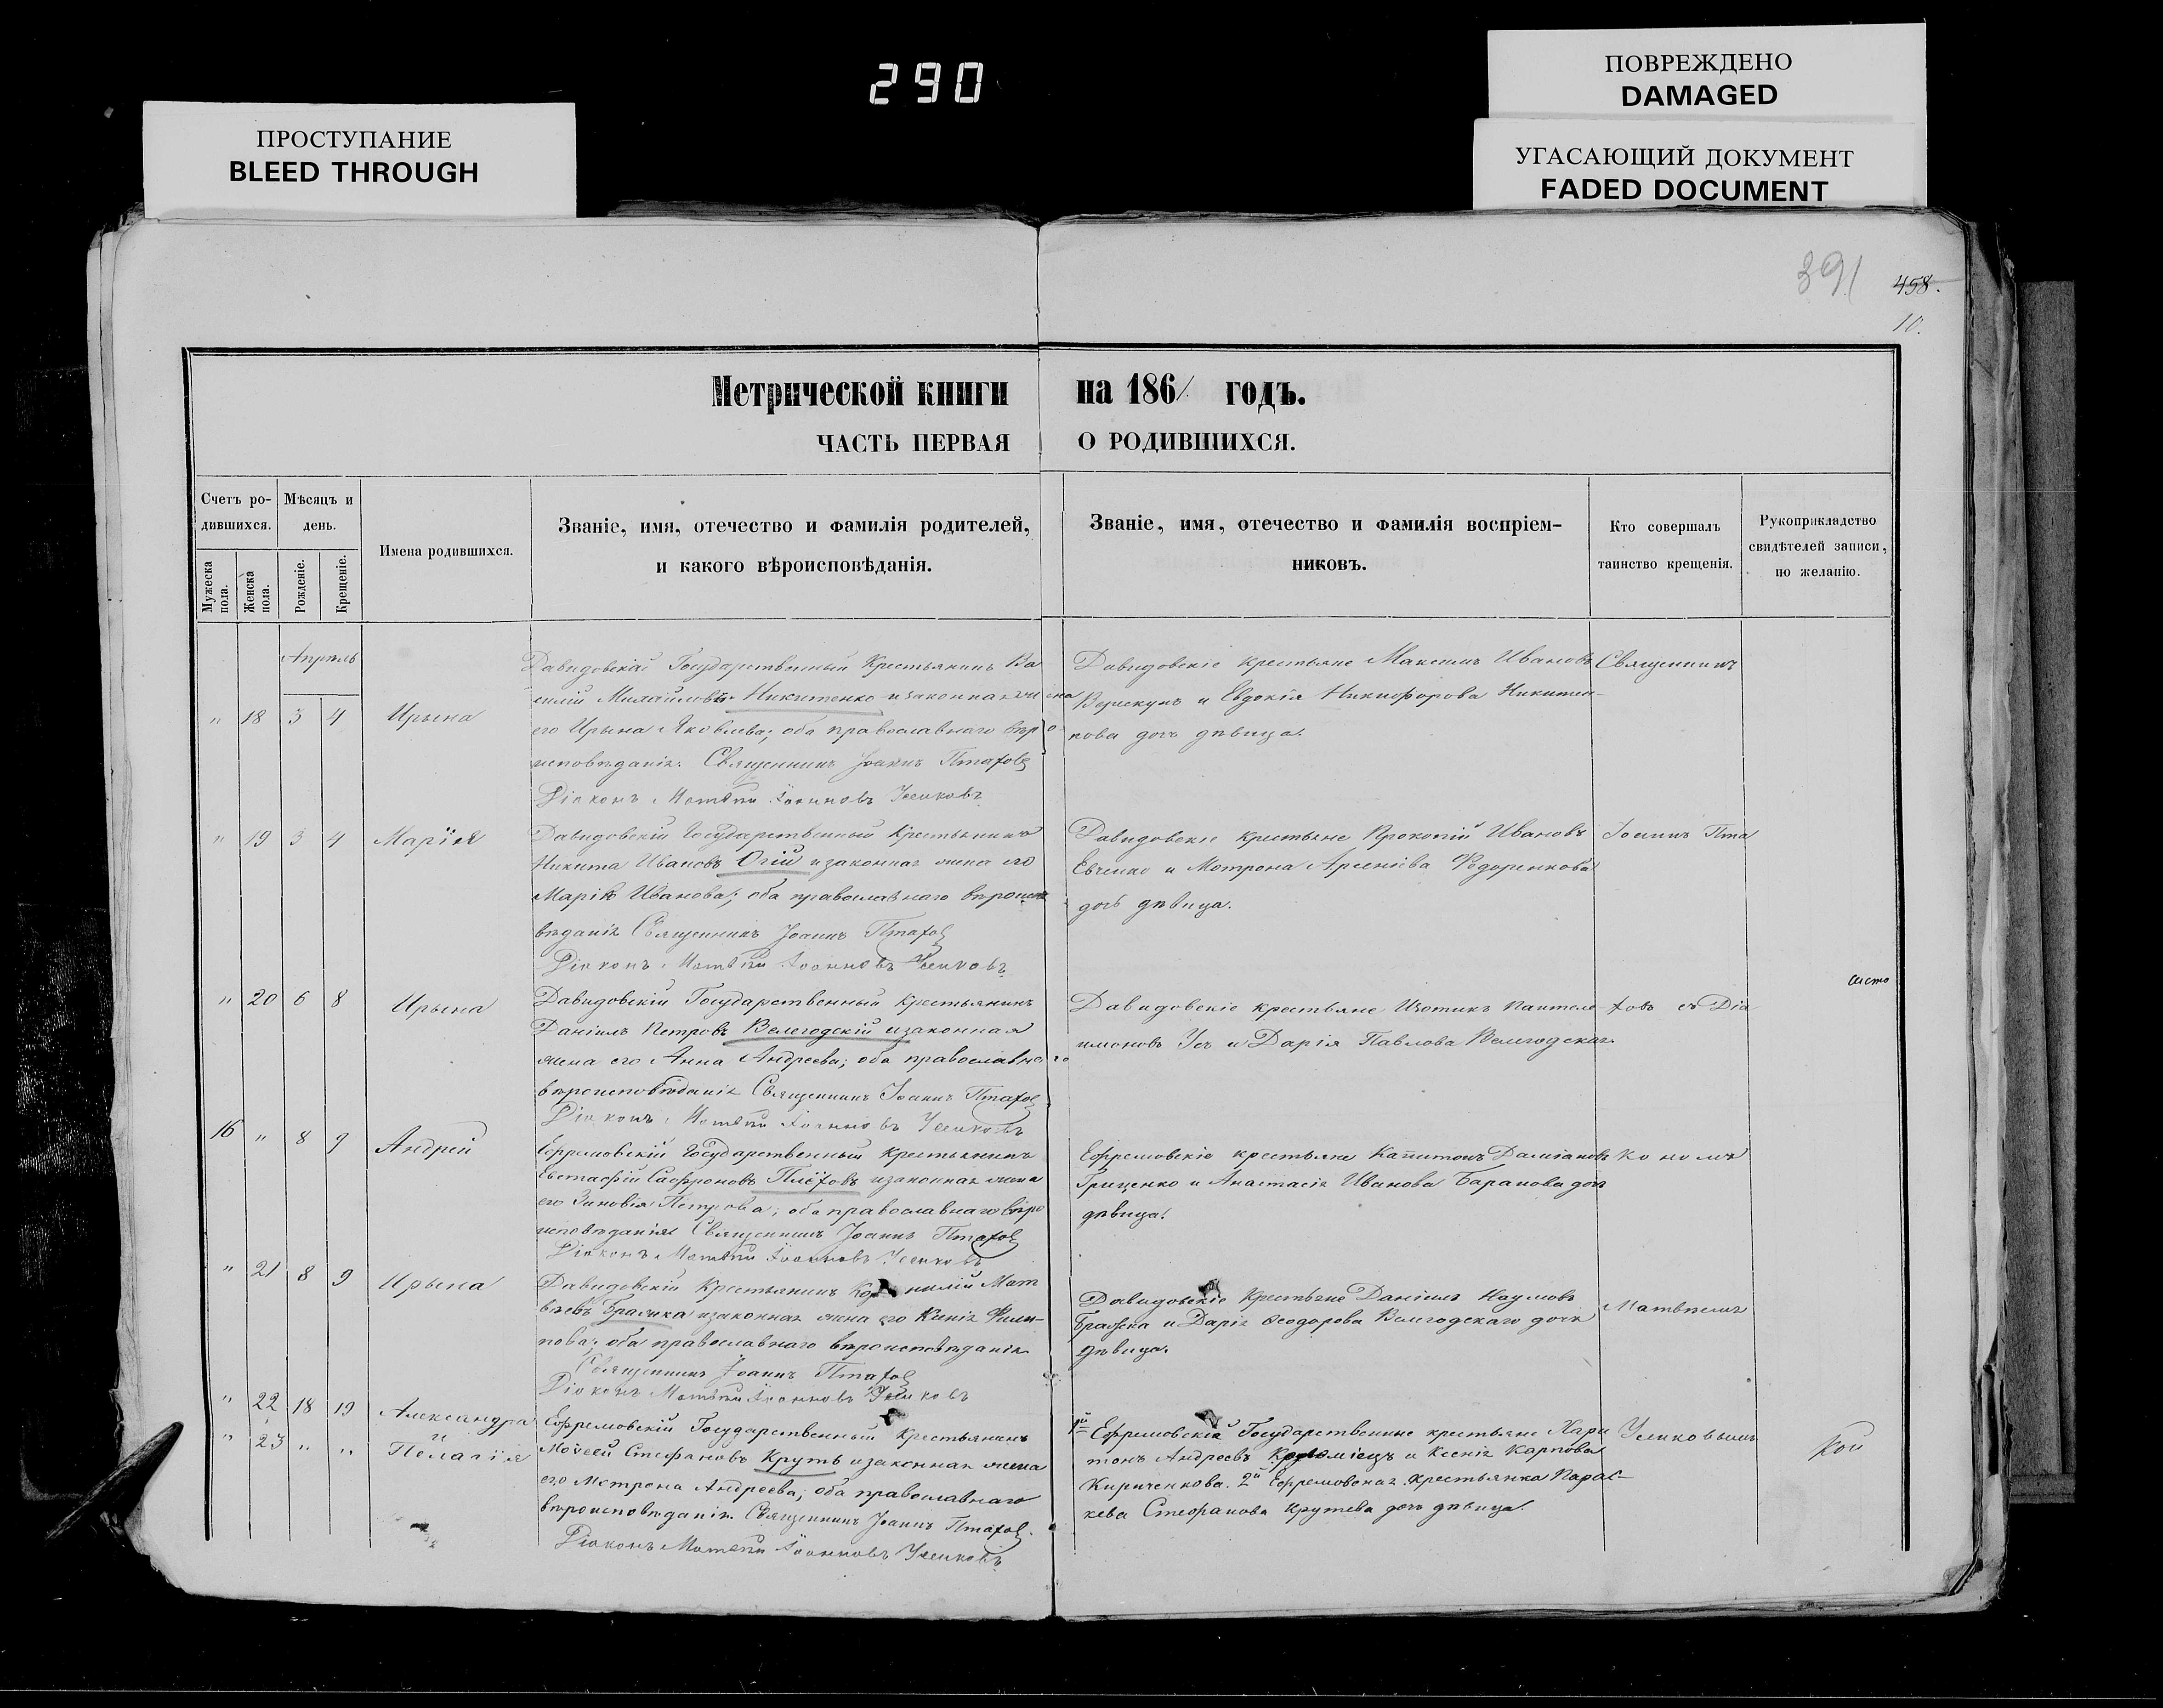 290
ПРОСТУПАНИЕ
BLEED THROUGH
ПОВРЕЖДЕНО
DAMAGED
УГАСАЮЩИЙ ДОКУМЕНТ
FADED DOCUMENT
391
458.
10.
Метрической книги на 186/ годъ.
ЧАСТЬ ПЕРВАЯ О РОДИВШИХСЯ.
Счетъ ро-
дившихся.
Мужеска
пола.
Женска
пола.
Мѣсяцъ и
день.
Рожденіе.
Крещеніе.
Имена родившихся.
Званіе, имя, отечество и фамилія родителей,
и какого вѣроисповѣданія.
Званіе, имя, отечество и фамилія воспріем-
никовъ.
Кто совершалъ
таинство крещенія.
Рукоприкладство
свидѣтелей записи,
по желанію.
Апрѣль
" 18 3 4 Ирына
Давидовскій Государственный Крестьянинъ Ва
силій Михайловъ Никитенко и законная жена
его Ирына Яковлева; оба православнаго вѣро
исповѣданія. Священникъ Іоаннъ Птахов
Діаконъ Матвѣй Іоанновъ Усиковъ
Давидовскіе крестьяне Максимъ Ивановъ
и Евдокія Никифорова Никитен-
кова дочь дѣвица.
Священникъ
" 19 3 4 Марія
Давидовскій Государственный Крестьянинъ
Никита Ивановъ Огій и законная жена его
Марія Иванова; оба православнаго вѣроиспо
вѣданія Священникъ Іоаннъ Птахов
Діаконъ Матвѣй Іоанновъ Усиковъ
Давидовскіе крестьяне Прокопій Ивановъ
Евченко и Мотрона Арсеніева Ѳедоренкова
дочь дѣвица.
Іоаннъ Пта
" 20 6 8 Ирына
Давидовскій Государственный Крестьянинъ
Даніилъ Петровъ Велегодскій и законная
жена его Анна Андреева; оба православнаго
вѣроисповѣданія Священникъ Іоаннъ Птахов
Діаконъ Матвѣй Іоанновъ Усиковъ
Давидовскіе крестьяне Изотикъ Пантеле
имоновъ Усъ и Дарія Павлова Велегодская
ховъ съ Діа
16 " 8 9 Андрей
Ефремовскій Государственный Крестьянинъ
Евстафій Сафроновъ Плёховъ и законная жена
его Зиновія Петрова; оба православнаго вѣро
исповѣданія Священникъ Іоаннъ Птахов
Діаконъ Матвѣй Іоанновъ Усиковъ
Ефремовскіе крестьяне Капитонъ Даміановъ
Гриценко и Анастасія Иванова Баранова дочь
дѣвица.
кономъ
" 21 8 9 Ирына
Давидовскій Крестьянинъ Кор нилій Мат
вѣевъ Бражка и законная жена его Ксенія Фили-
пова; оба православнаго вѣроисповѣданія.
Священникъ Іоаннъ Птахов
Діаконъ Матвѣй Іоанновъ Усиковъ
Давидовскіе Крестьяне Даніилъ Наумовъ
Бражка и Дарія Ѳеодорова Велегодскаго дочь
дѣвица.
Матвѣемъ
" 22 18 19 Александра
" 23 " " Пелагія
Ефремовскій Государственный Крестьянинъ
Моѵсей Стефановъ Круть и законная жена
его Мотрона Андреева; оба православнаго
вѣроисповѣданія. Священникъ Іоаннъ Птахов
Діаконъ Матвѣй Іоанновъ Усиковъ
1й Ефремовскіе Государственные крестьяне Хари
тонъ Андреевъ и Ксенія Карпова
Кириченкова. 2й Ефремовская крестьянка Парас-
кева Стефанова Крутева дочь дѣвица.
Усиковымъ